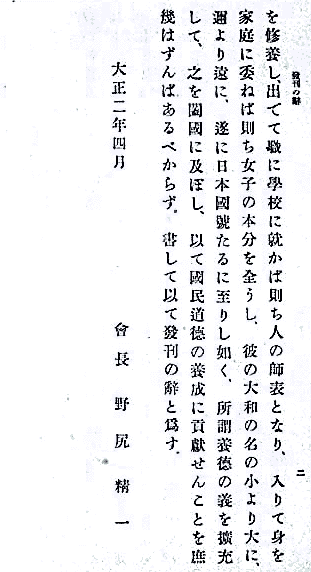 發刊の辭
二
を修養し、出てて職に學校に就かば則ち人の師表となり、入りて身を
家庭に委ねば則ち女子の本分を全うし、彼の大和の名の小より大に、
邇より遠に、遂に日本國號たるに至りし如く、所謂養德の義を擴充
して、之を闔國に及ぼし、以て國民道德の養成に貢獻せんことを庶
幾はずんばあるべからず。書して以て發刊の辭と爲す。
大正二年四月
會長 野尻精一